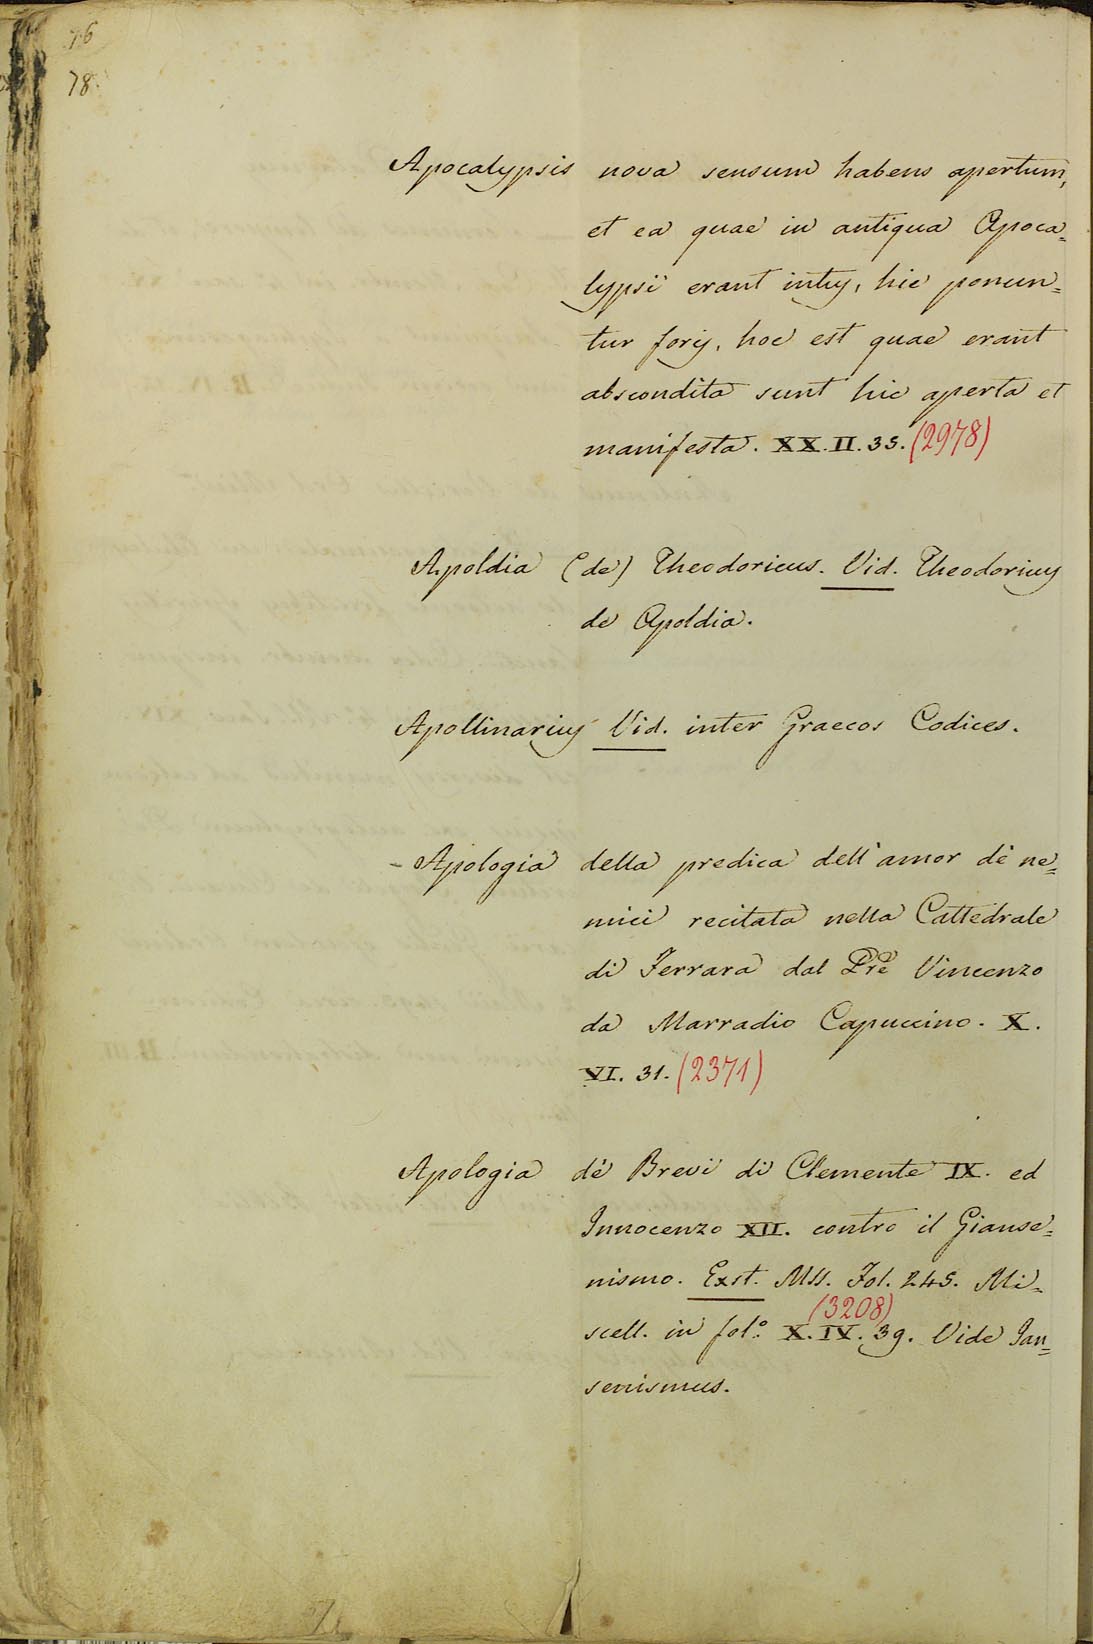 76
78.
Apocalypsis nova sensum habens apertum,
et ea quae in antiqua Apoca=
lypsi erant intus, hic ponun=
tur foris, hoc est quae erant
abscondita sunt hic aperta et
manifesta. XX.II.35. (2978)
Apoldia (de) Theodoricus. Vid. Theodoricus
de Apoldia.
Apollinarius Vid. inter Graecos Codices.
- Apologia della predica dell'amor dè ne=
mici recitata nella Cattedrale
di Ferrara dal Pre Vincenzo
da Marradio Capuccino. X.
VI. 31. (2371)
Apologia dè Brevi di Clemente IX. ed
Innocenzo XII. contro il Gianse=
nismo. Exst. Mss. Fol. 245. Mi=
scell. in fol.º X.IV.39. Vide Jan=
(3208)
senismus.